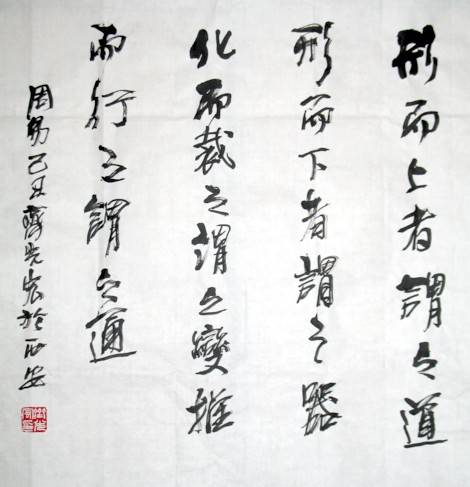 形而上者謂之道
形而下者謂之器
化而裁之謂之變推
而行之謂之通
周易己丑薛先宏於西安